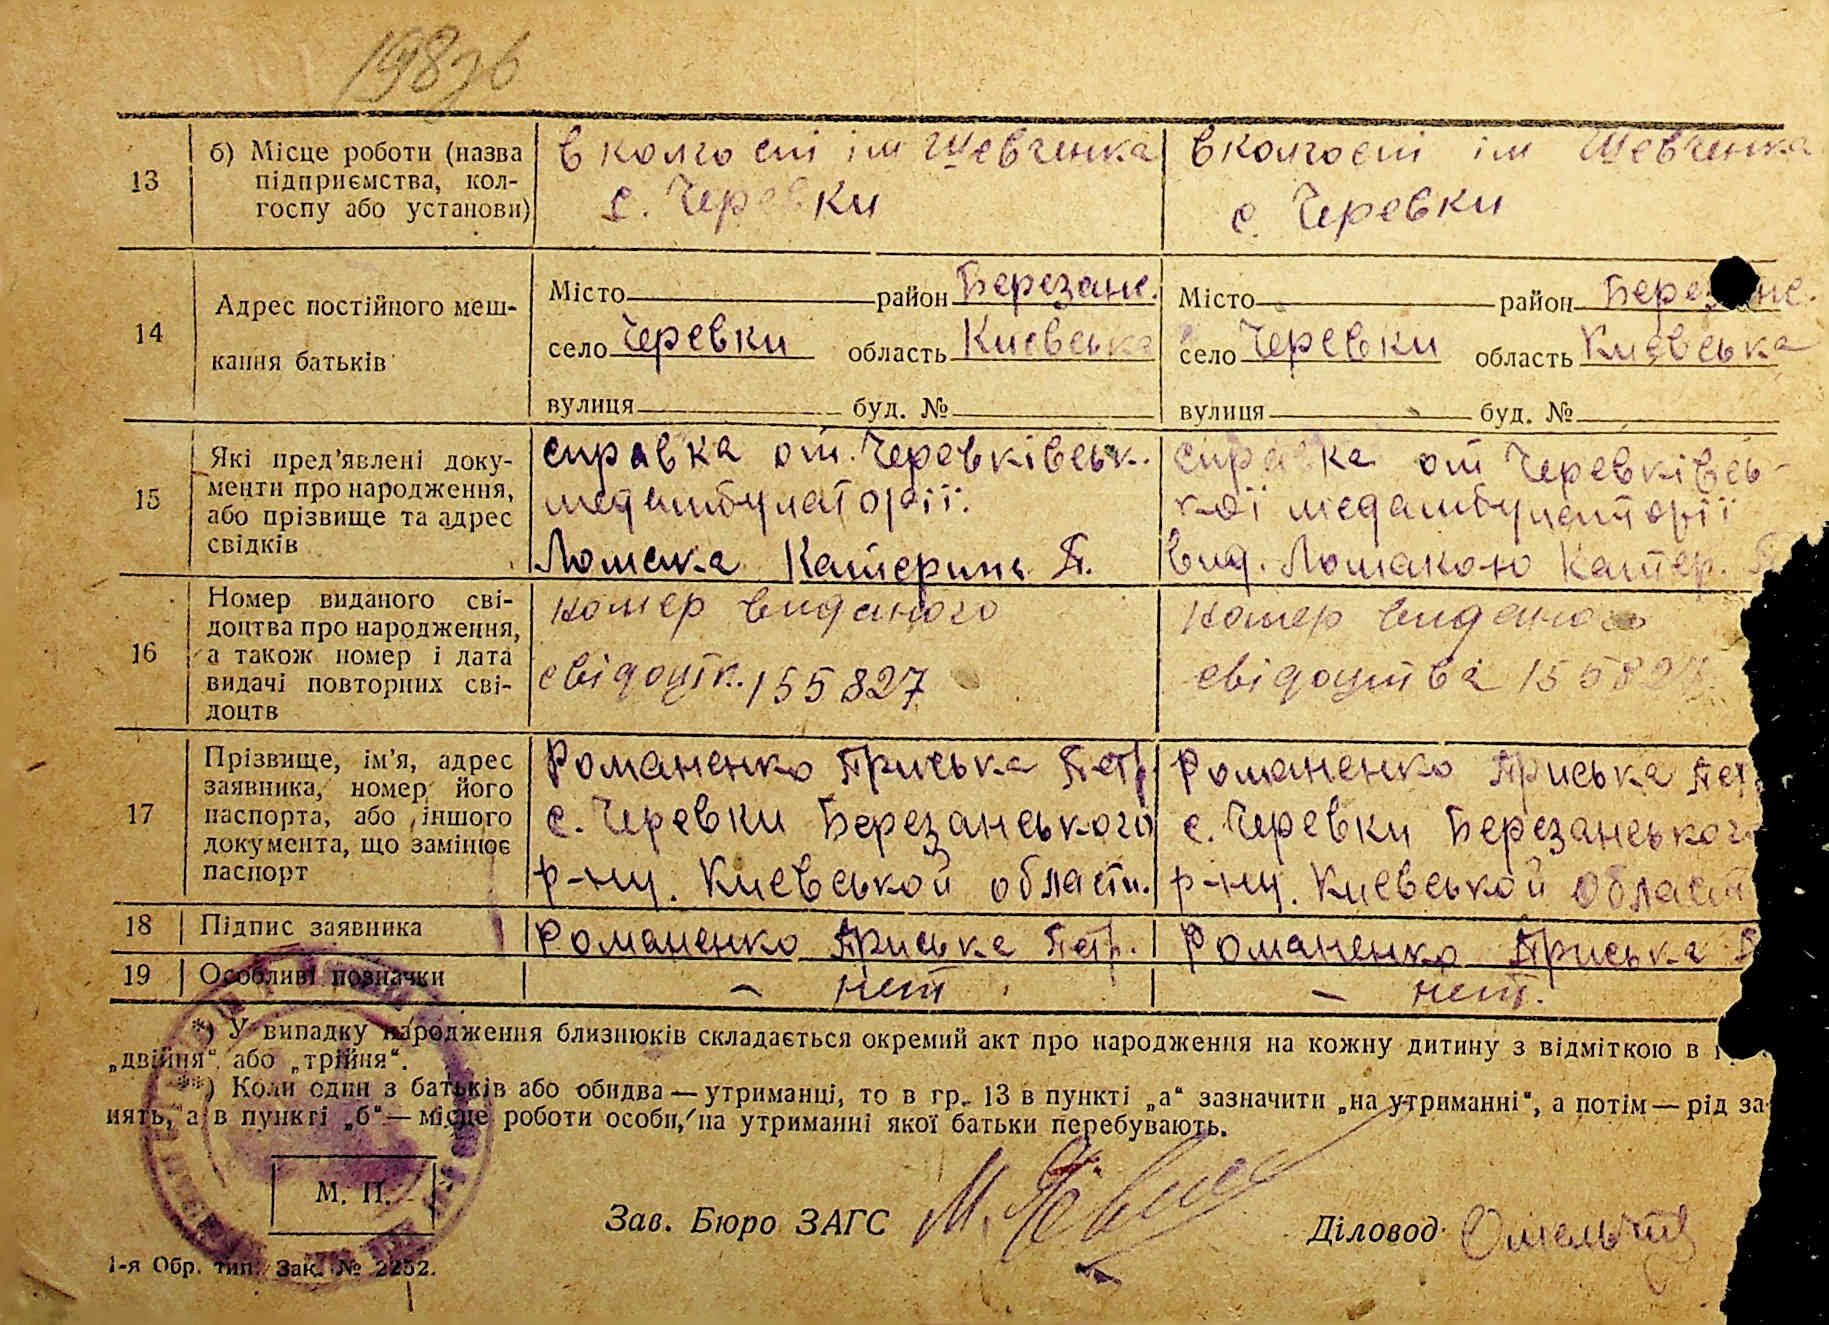 19836
13 б) Місце роботи (назва підприємства, кол-госпу або установи)
в колгоспі ім Шевченка
с. Черевки
в колгоспі ім Шевченка
с. Черевки
14 Адрес постійного меш-
кання батьків
Місто район Березанс.
село Черевки область Киевська
вулиця буд. №
Місто район Березанс.
село Черевки область Киевська
вулиця буд. №
15 Які пред'явлені доку-
менти про народження,
або прізвище та адрес
свідків
справка от. Черевківськ.
медамбулаторії.
Ломака Катерина П.
справка от Черевківсь-
кої медамбулаторії
вид. Ломакою Катер. П
16 Номер виданого сві-
доцтва про народження,
а також номер і дата
видачі повторних сві-
доцтв
номер виданого
свідоцтв. 155827
номер виданого
свідоцтва 155827
17 Прізвище, ім'я, адрес
заявника, номер його
паспорта, або іншого
документа, що замінює
паспорт
Романенко Приська Петр
с. Черевки Березанського
р-ну. Киевськой области.
Романенко Приська Пет
с. Черевки Березанського
р-ну. Киевськой област
18 Підпис заявника
Романенко Приська Петр.
Романенко Приська П
19 Особливі позначки
– нет
– нет.
*) У випадку народження близнюків складається окремий акт про народження на кожну дитину з відміткою в
„двійня“ або „трійня“.
**) Коли один з батьків або обидва — утриманці, то в гр. 13 в пункті „а“ зазначити „на утриманні“, а потім — рід за-
нять, а в пункті „б“ — місце роботи особи, на утриманні якої батьки перебувають.
М. П.
Зав. Бюро ЗАГС
Діловод
1-я Обр. тип. Зак. № 2252.